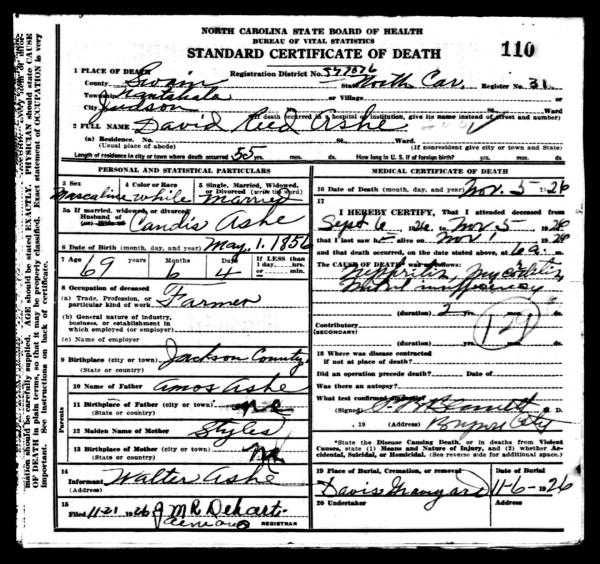 NORTH CAROLINA STATE BOARD OF HEALTH
BUREAU OF VITAL STATISTICS
STANDARD CERTIFICATE OF DEATH
110
1 PLACE OF DEATH
Registration District No.
County Swain State North Car. Register No. 31
Township Nantahala or Village or
City Judson No. St. Ward
(If death occurred in a hospital or institution, give its name instead of street and number)
2 FULL NAME David Reed Ashe
(a) Residence. No. St. Ward.
(Usual place of abode) (If nonresident give city or town and State)
Length of residence in city or town where death occurred 55 yrs. mos. ds. How long in U. S. if of foreign birth? yrs. mos. ds.
PERSONAL AND STATISTICAL PARTICULARS
3 Sex 4 Color or Race 5 Single, Married, Widowed, or Divorced (write the word)
Mascaline while married
5a If married, widowed, or divorced
Husband of Candis Ashe
6 Date of Birth (month, day, and year) May 1. 1856
7 Age 69 years Months 6 Days 4 If LESS than 1 day, hrs. or min.
8 Occupation of deceased
(a) Trade, Profession, or particular kind of work Farmer
(b) General nature of industry, business, or establishment in which employed (or employer)
(c) Name of Employer
9 Birthplace (city or town) Jackson County
(State or country)
Parents
10 Name of Father Amos Ashe
11 Birthplace of Father (city or town) nc
(State or country)
12 Maiden Name of Mother Styles
13 Birthplace of Mother (city or town)
(State or country)
14 Informant Walter Ashe
(Address)
15 Filed 11-21 1926 J M R Dehart
REGISTRAR
MEDICAL CERTIFICATE OF DEATH
16 Date of Death (month, day, and year) Nov. 5 1926
17
I HEREBY CERTIFY, That I attended deceased from
Sept 6 1926 to Nov 5 1926
that I last saw h alive on Nov 1 1926
and that death occurred, on the date stated above, at 6 a m.
The CAUSE OF DEATH* was as follows:
(duration) 2 yrs. mos. ds.
Contributory (SECONDARY)
(duration) yrs. mos. ds.
18 Where was disease contracted
if not at place of death?
Did an operation precede death? Date of
Was there an autopsy?
What test confirmed diagnosis?
(Signed) Bennett M. D.
, 19 (Address) Bryson City
*State the Disease Causing Death, or in deaths from Violent Causes, state (1) Means and Nature of Injury, and (2) whether Accidental, Suicidal, or Homicidal. (See reverse side for additional space.)
19 Place of Burial, Cremation, or removal Date of Burial
Davis Graveyard 11-6- 1926
20 Undertaker Address